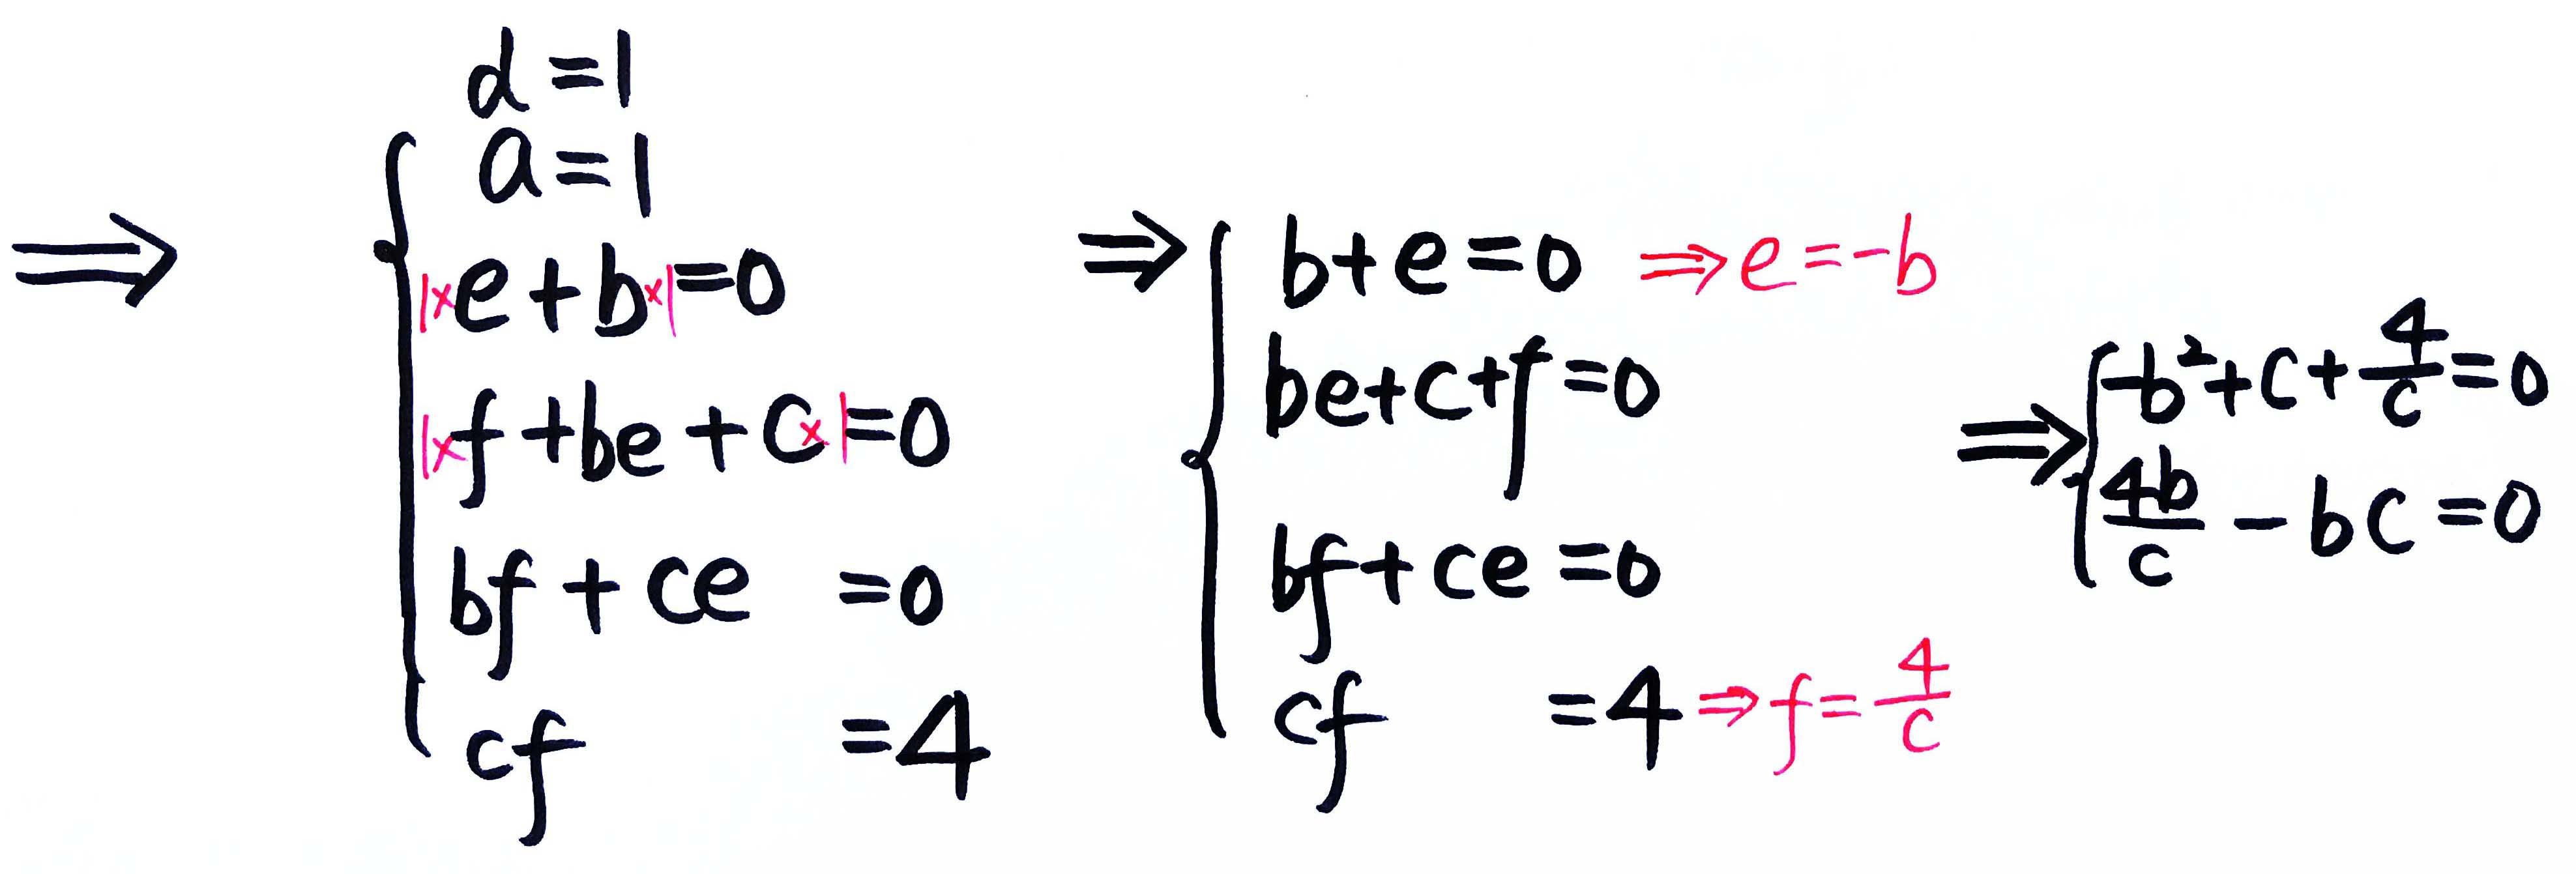 d=1
⇒ { a=1
1×e+b×1=0
1×f+be+c×1=0
bf+ce =0
cf =4
⇒ { b+e=0 ⇒e=-b
be+c+f=0
bf+ce=0
cf =4⇒f=4/c
⇒ { -b²+c+4/c=0
4b/c-bc=0